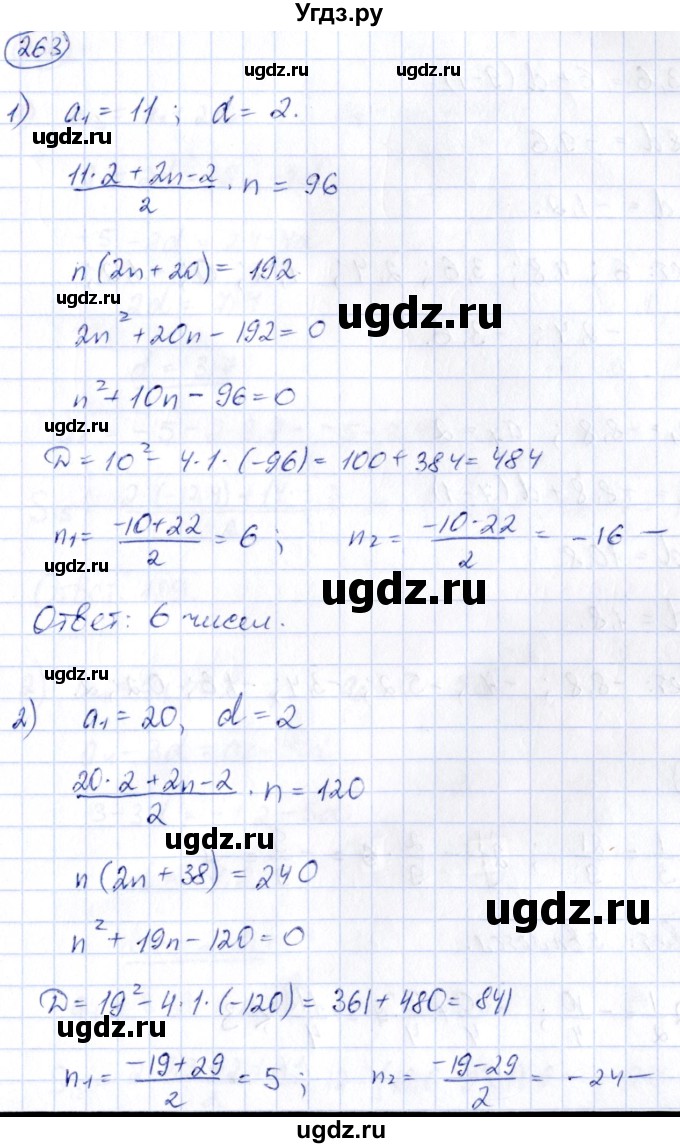 Угдз.ру
263
ugdz.ru ugdz.ru
1) a₁ = 11 ; d = 2.
ugdz.ru
(11·2 + 2n-2)/2 · n = 96
n (2n+20) = 192
ugdz.ru ugdz.ru
2n² + 20n - 192 = 0
n² + 10n - 96 = 0
ugdz.ru
D = 10² - 4·1·(-96) = 100 + 384 = 484
n₁ = (-10+22)/2 = 6 ; n₂ = (-10-22)/2 = -16 —
ugdz.ru ugdz.ru
Ответ: 6 чисел.
ugdz.ru
2) a₁ = 20, d = 2
(20·2 + 2n-2)/2 · n = 120
ugdz.ru
n (2n + 38) = 240
ugdz.ru
n² + 19n - 120 = 0
D = 19² - 4·1·(-120) = 361 + 480 = 841
ugdz.ru
n₁ = (-19+29)/2 = 5 ; n₂ = (-19-29)/2 = -24 —